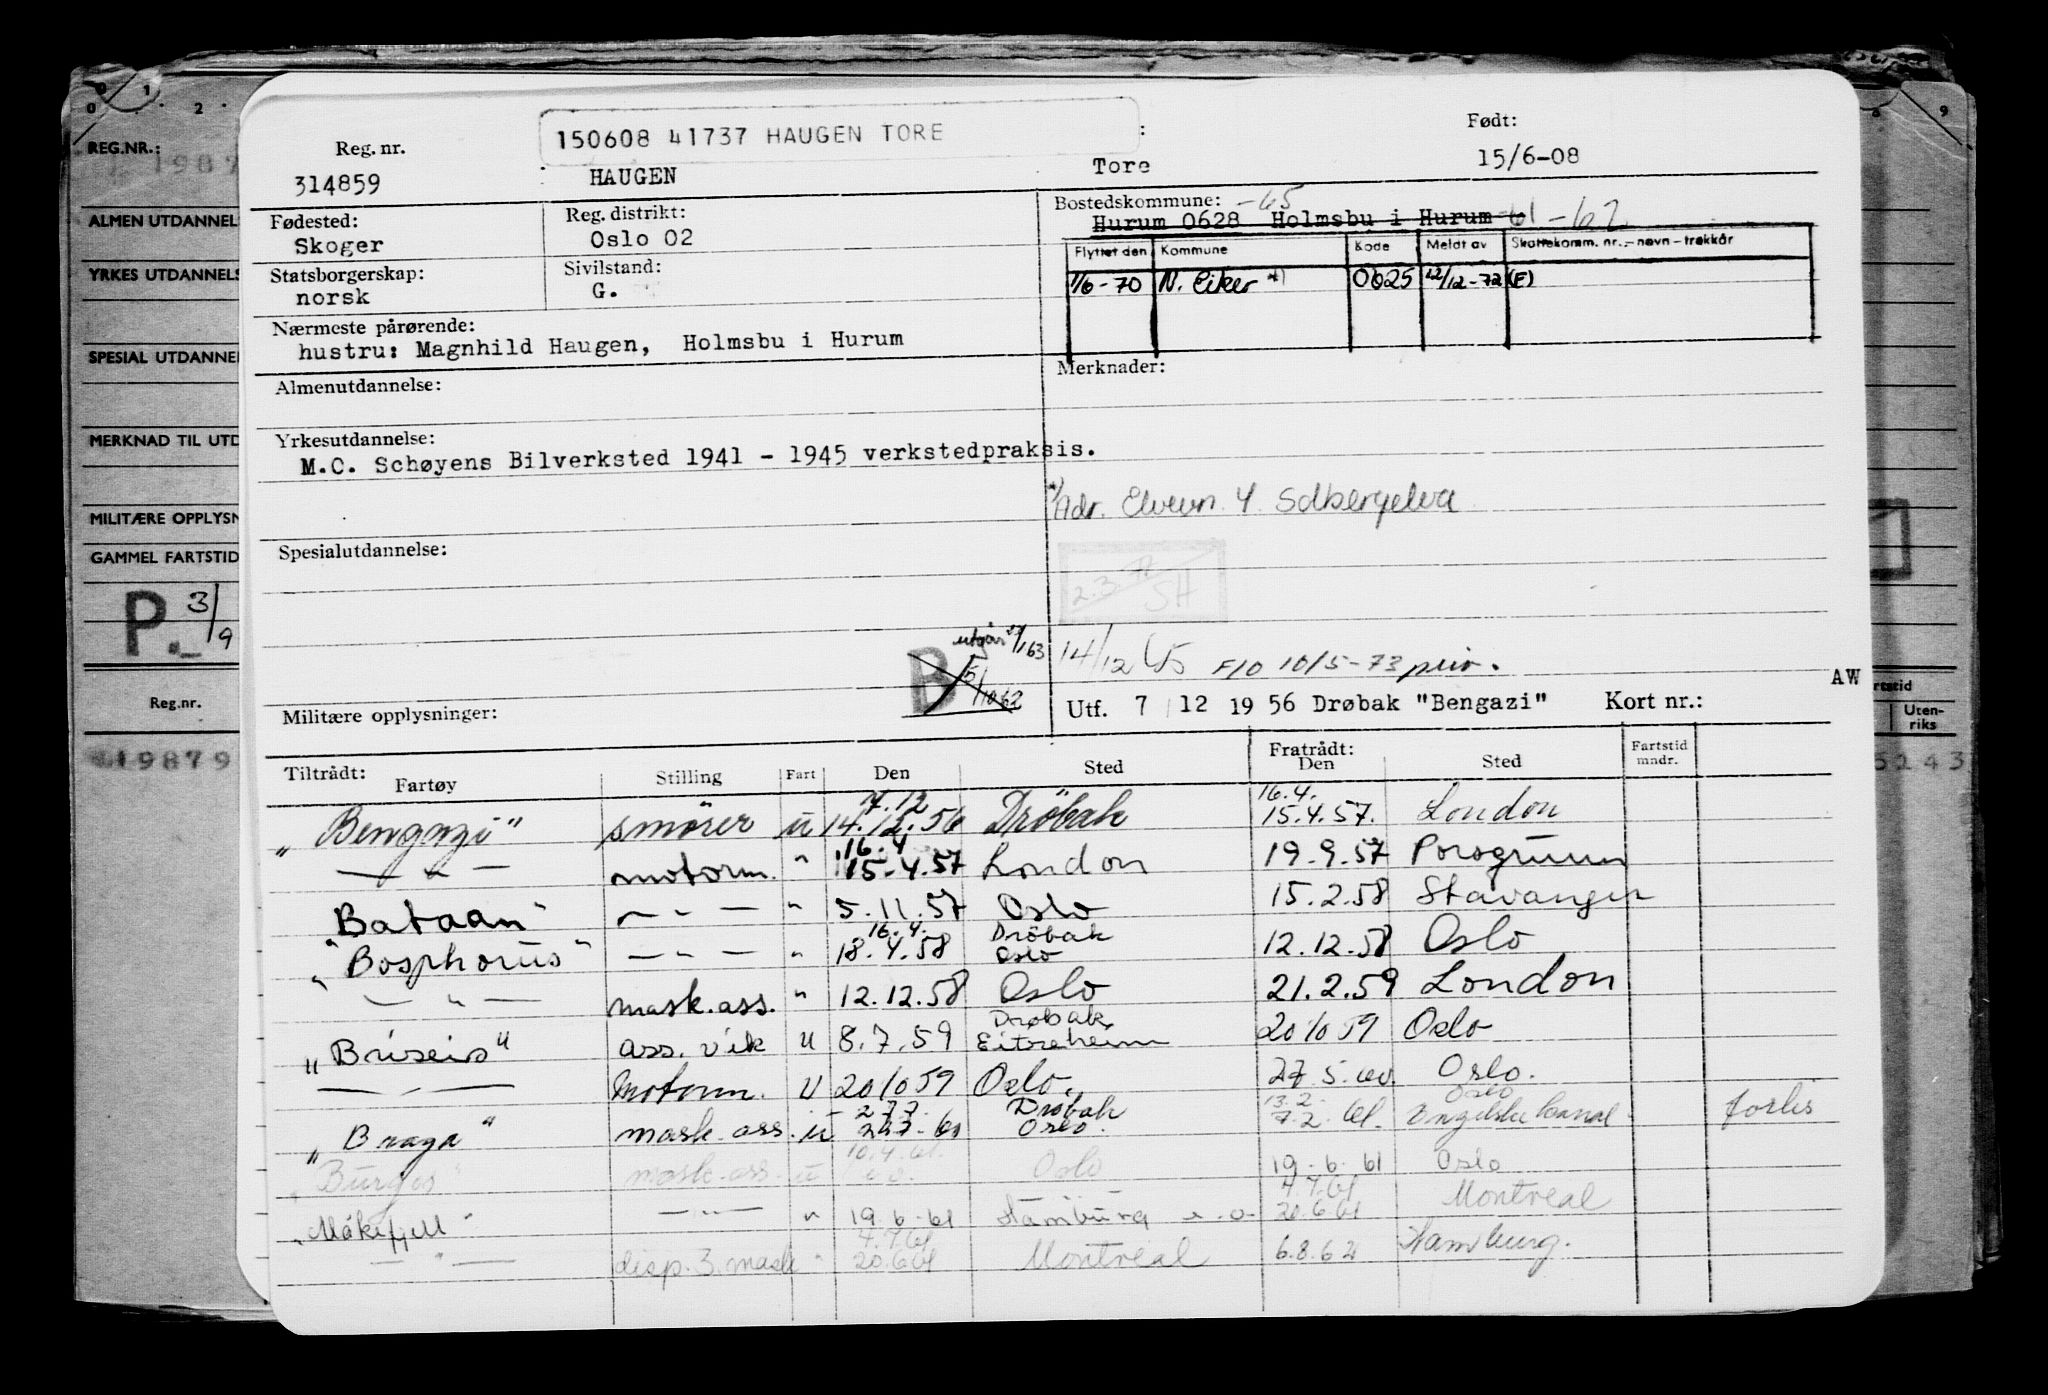 REG.NR.:
ALMEN UTDANNEL
YRKES UTDANNELS
SPESIAL UTDANNEL
MERKNAD TIL UTD
MILITÆRE OPPLYSN
GAMMEL FARTSTID
P. 3/9
Reg.nr.
19879
150608 41737 HAUGEN TORE
Reg. nr. Født:
314859 HAUGEN Tore 15/6-08
Fødested: Reg. distrikt: Bostedskommune: -65
Skoger Oslo 02 Hurum 0628 Holmsbu i Hurum -61 -62
Flyttet den Kommune Kode Meldt av Skattekomm. nr. - navn - trekkår
Statsborgerskap: Sivilstand:
norsk G. 1/6-70 N. Eiker *) 0625 22/12-72 (F)
Nærmeste pårørende:
hustru: Magnhild Haugen, Holmsbu i Hurum
Almenutdannelse: Merknader:
Yrkesutdannelse:
M.C. Schøyens Bilverksted 1941 - 1945 verkstedpraksis.
*) Adr. Elvevn. 4 Solbergelva
Spesialutdannelse:
2.3.72 SH
utgår 1/63
B 5/10 62
14/12 65 F/O 10/5-73 priv.
AW
Militære opplysninger: Utf. 7 / 12 19 56 Drøbak "Bengazi" Kort nr.:
Tiltrådt: Fratrådt:
Fartøy Stilling Fart Den Sted Den Sted Fartstid mndr.
7.12 16.4.
"Bengazi" smører u 14.12.56 Drøbak 15.4.57. London
16.4
— " — motorm. " 15-4.57 London 19.9.57 Porsgrunn
"Bataan" — " — " 5.11.57 Oslo 15.2.58 Stavanger
16.4. Drøbak
"Bosphorus" — " — " 18.4.58 Oslo 12.12.58 Oslo
— " — mask.ass. " 12.12.58 Oslo 21.2.59 London
Drøbak
"Briseis" ass. vik u 8.7.59 Eitreheim 20/10 59 Oslo
— " — Motorm. u 20/10 59 Oslo. 27.5.60 Oslo.
27.7. Drøbak 13.2. Oslo
"Braga" mask.ass. u 28.7-60 Oslo. 7.2.61. Engelske kanal forlis
10.4.61.
"Burgos" mask.ass. u Oslo 19-6-61 Oslo
4.7.61
"Måkefjell" — " — " 19.6-61 Hamburg 20.6.61 Montreal
4.7.61
— " — disp. 3. mask " 20.6.61 Montreal 6.8.62 Hamburg.
Uten-
riks
5243